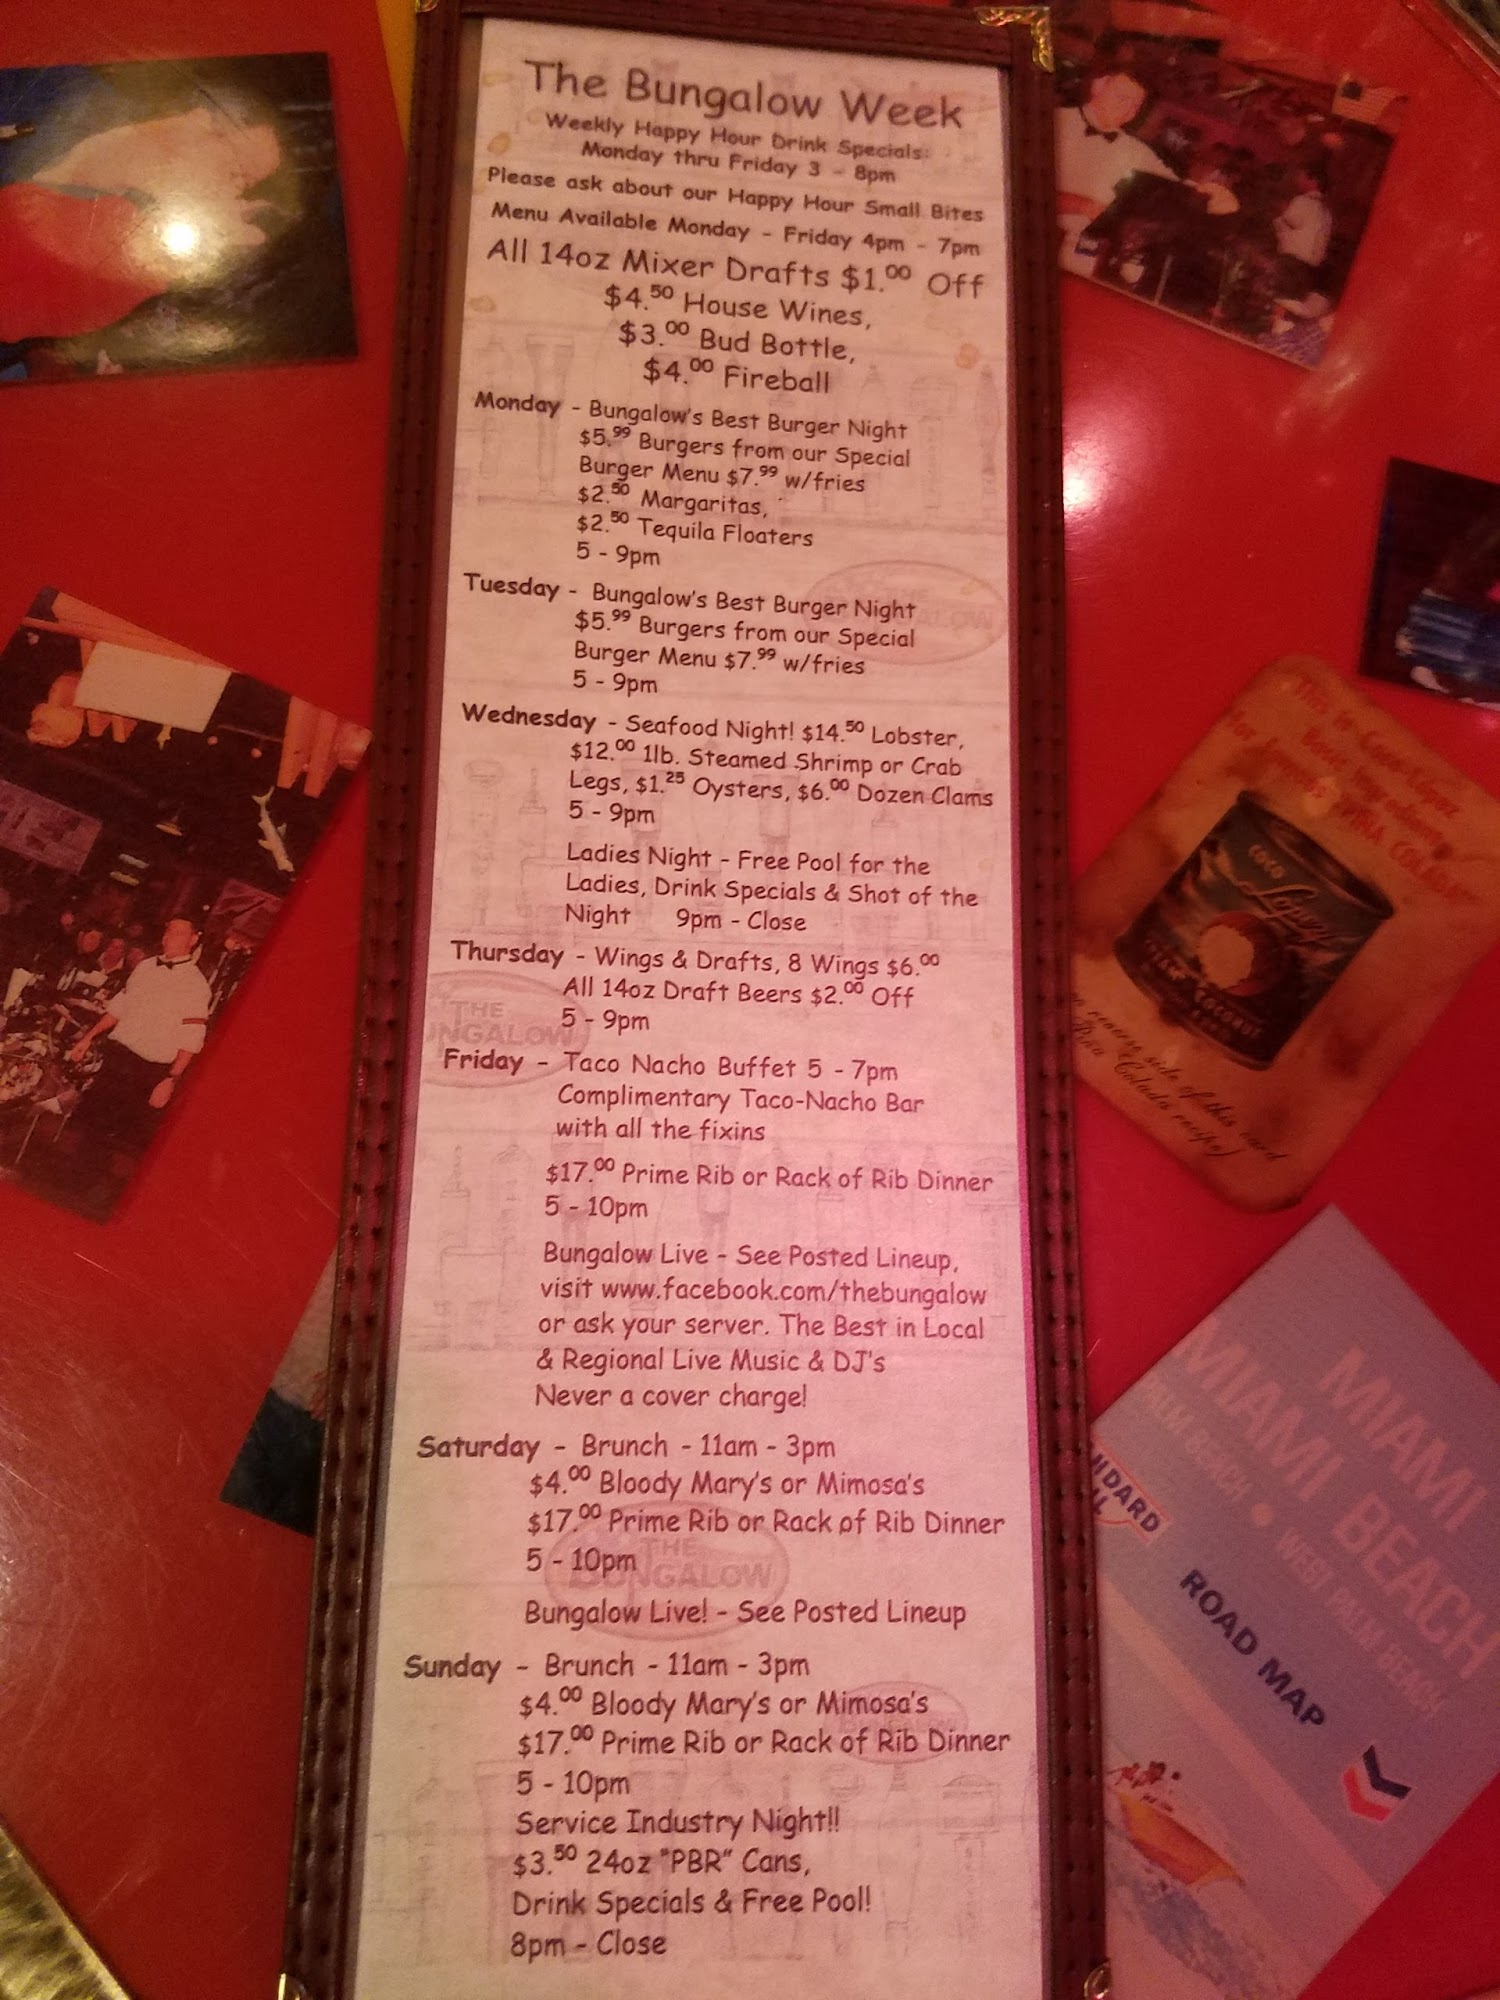 The Bungalow Week
Weekly Happy Hour Drink Specials:
Monday thru Friday 3 - 8pm
Please ask about our Happy Hour Small Bites
Menu Available Monday - Friday 4pm - 7pm
All 14oz Mixer Drafts $1.00 Off
$4.50 House Wines,
$3.00 Bud Bottle,
$4.00 Fireball
Monday - Bungalow's Best Burger Night
$5.99 Burgers from our Special
Burger Menu $7.99 w/fries
$2.50 Margaritas,
$2.50 Tequila Floaters
5 - 9pm
Tuesday - Bungalow's Best Burger Night
$5.99 Burgers from our Special
Burger Menu $7.99 w/fries
5 - 9pm
Wednesday - Seafood Night! $14.50 Lobster,
$12.00 1lb. Steamed Shrimp or Crab
Legs, $1.25 Oysters, $6.00 Dozen Clams
5 - 9pm
Ladies Night - Free Pool for the
Ladies, Drink Specials & Shot of the
Night 9pm - Close
Thursday - Wings & Drafts, 8 Wings $6.00
All 14oz Draft Beers $2.00 Off
5 - 9pm
Friday - Taco Nacho Buffet 5 - 7pm
Complimentary Taco-Nacho Bar
with all the fixins
$17.00 Prime Rib or Rack of Rib Dinner
5 - 10pm
Bungalow Live - See Posted Lineup,
visit www.facebook.com/thebungalow
or ask your server. The Best in Local
& Regional Live Music & DJ's
Never a cover charge!
Saturday - Brunch - 11am - 3pm
$4.00 Bloody Mary's or Mimosa's
$17.00 Prime Rib or Rack of Rib Dinner
5 - 10pm
Bungalow Live! - See Posted Lineup
Sunday - Brunch - 11am - 3pm
$4.00 Bloody Mary's or Mimosa's
$17.00 Prime Rib or Rack of Rib Dinner
5 - 10pm
Service Industry Night!!
$3.50 24oz "PBR" Cans,
Drink Specials & Free Pool!
8pm - Close
THE
BUNGALOW
COCO
López
COCONUT
reverse side of this card
Piña Colada recipe)
MIAMI
MIAMI BEACH
PALM BEACH • WEST PALM BEACH
ROAD MAP